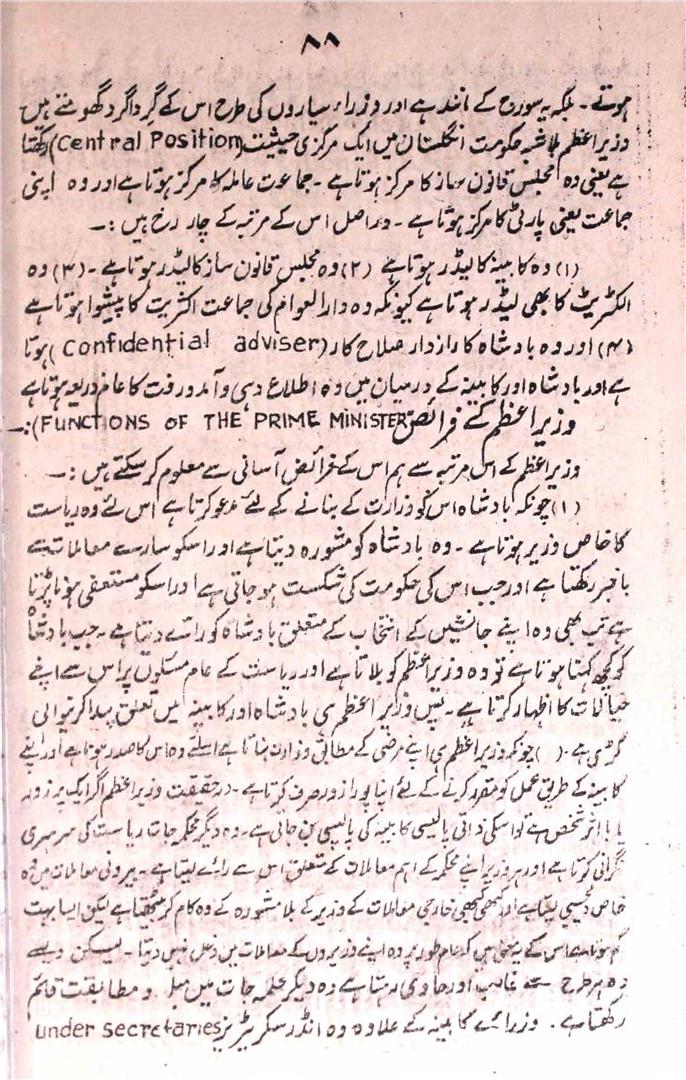 ۸۸
ہوتے۔ بلکہ یہ سورج کے مانند ہے اور وزراء سیاروں کی طرح اس کے گرد اگرد گھومتے ہیں
وزیراعظم بلاشبہ حکومت انگلستان میں ایک مرکزی حیثیت (Central Position) رکھتا
ہے یعنی وہ مجلس قانون ساز کا مرکز ہوتا ہے۔ جماعت عاملہ کا مرکز ہوتا ہے اور وہ اپنی
جماعت یعنی پارٹی کا مرکز ہوتا ہے۔ دراصل اس کے مرتبہ کے چار رخ ہیں :۔
(۱) وہ کابینہ کا لیڈر ہوتا ہے (۲) وہ مجلس قانون ساز کا لیڈر ہوتا ہے۔ (۳) وہ
الکٹریٹ کا بھی لیڈر ہوتا ہے کیونکہ وہ دارالعوام کی جماعت اکثریت کا پیشوا ہوتا ہے
(۴) اور وہ بادشاہ کا رازدار صلاح کار (Confidential adviser) ہوتا
ہے اور بادشاہ اور کابینہ کے درمیان میں وہ اطلاع دہی و آمد ورفت کا عام ذریعہ ہوتا ہے
وزیراعظم کے فرائض (FUNCTIONS OF THE PRIME MINISTER):۔
وزیراعظم کے اس مرتبہ سے ہم اس کے فرائض آسانی سے معلوم کر سکتے ہیں :۔
(۱) چونکہ بادشاہ اس کو وزارت کے بنانے کے لئے مدعو کرتا ہے اس لئے وہ ریاست
کا خاص وزیر ہوتا ہے۔ وہ بادشاہ کو مشورہ دیتا ہے اور اسکو سارے معاملات سے
باخبر رکھتا ہے اور جب اس کی حکومت کی شکست ہو جاتی ہے اور اسکو مستعفی ہونا پڑتا
ہے تب بھی وہ اپنے جانشیں کے انتخاب کے متعلق بادشاہ کو رائے دیتا ہے۔ جب بادشاہ
کو کچھ کہنا ہوتا ہے تو وہ وزیراعظم کو بلاتا ہے اور ریاست کے عام مسئلوں پر اس سے اپنے
خیالات کا اظہار کرتا ہے۔ پس وزیر اعظم ہی بادشاہ اور کابینہ میں تعلق پیدا کرنیوالی
کڑی ہے۔ ( ) چونکہ وزیراعظم ہی اپنے مرضی کے مطابق وزارت بناتا ہے اسلئے وہ اس کا صدر ہوتا ہے اور اپنے
کابینہ کے طریق عمل کو مقرر کرنے کے لئے اپنا پورا زور صرف کرتا ہے۔ درحقیقت وزیراعظم اگر ایک پرزور
یا بااثر شخص ہے تو اسکی ذاتی پالیسی کابینہ کی پالیسی بن جاتی ہے۔ وہ دیگر محکمہ جات ریاست کی سرسری
نگرانی کرتا ہے اور ہر وزیر اپنے محکمہ کے اہم معاملات کے متعلق اس سے رائے لیتا ہے۔ بیرونی معاملات میں وہ
خاص دلچسپی لیتا ہے اور کبھی کبھی خارجی معاملات کے وزیر کے بلا مشورہ کے وہ کام کر بیٹھتا ہے لیکن ایسا بہت
کم ہوتا ہے اس کے یہ معنی ہیں کہ عام طور پر وہ اپنے وزیروں کے معاملات میں دخل نہیں دیتا۔ لیکن ویسے
وہ ہر طرح سے غالب اور حاوی رہتا ہے وہ دیگر محکمہ جات میں و مطابقت قائم
رکھتا ہے۔ وزرائے کابینہ کے علاوہ وہ انڈر سکریٹریز under secretaries